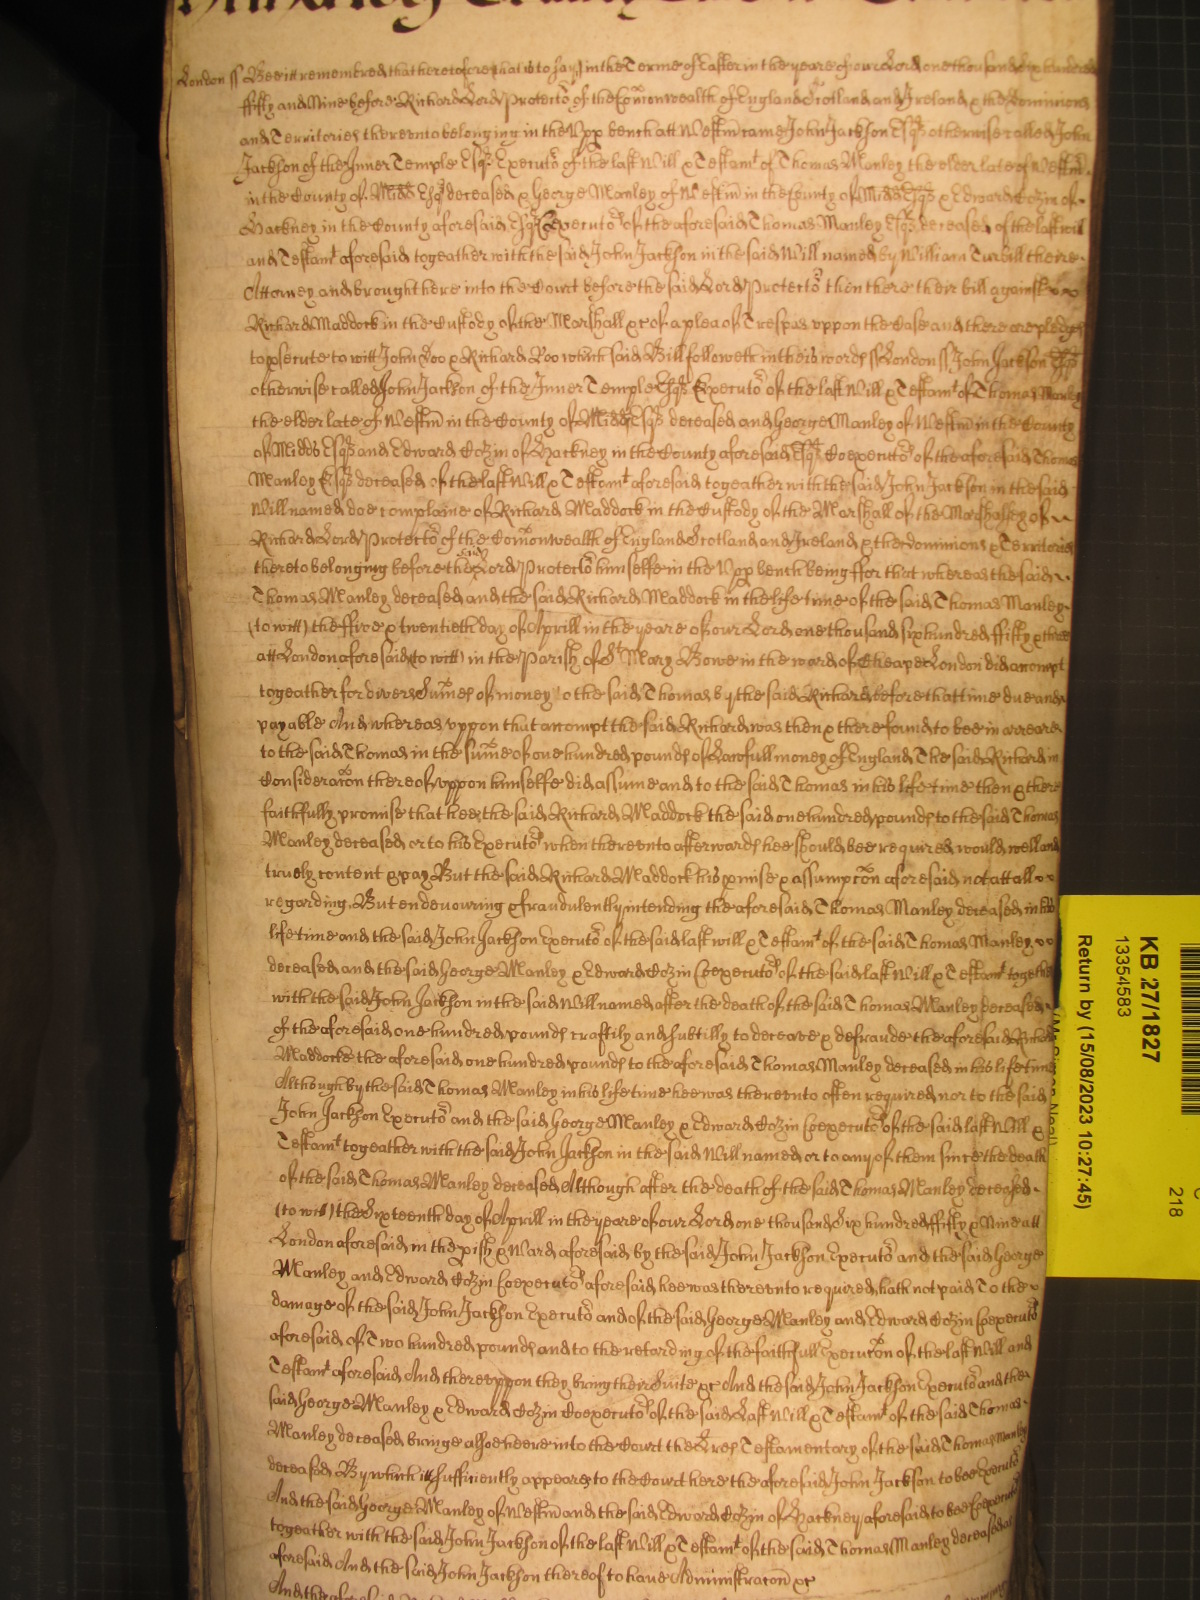 London ss Bee itt remembred that heretofore that is to say in the Terme of Easter in the yeare of our Lord one thousand six hundred
ffifty and Nine before Richard Lord Protecto^r of the Com̃onwealth of England Scotland and Ireland & the Dominions
and Territories thereunto belonging in the Upp bench att Westm̃ came John Jackson Esq^r otherwise called John
Jackson of the Inner Temple Esq^r Executo^r of the last Will & Testam^t of Thomas Manley the elder late of Westm̃
in the County of Midd Esq^r deceased & George Manley of Westm̃ in the County of Midd Esq^r & Edward Cozin of
Hackney in the County aforesaid Esq^r Coexecuto^rs of the aforesaid Thomas Manley Esq^r deceased of the last will
and Testam^t aforesaid togeather with the said John Jackson in the said Will named by William Turbill theire
Attorney and brought here into the Court before the said Lord Protecto^r then there their bill against
Richard Maddock in the Custody of the Marshall &c of a plea of Trespas uppon the Case and there are pledges
to psecute to witt John Doo & Richard Roo which said Bill followeth in theis words ss London ss John Jackson Esq^r
otherwise called John Jackson of the Inner Temple Esq^r Executo^r of the last Will & Testam^t of Thomas Manley
the elder late of Westm̃ in the County of Midd Esq^r deceased and George Manley of Westm̃ in the County
of Midds Esq^r and Edward Cozin of Hackney in the County aforesaid Esq^r Coexecuto^rs of the aforesaid Thomas
Manley Esq^r deceased of the last Will & Testam^t aforesaid togeather with the said John Jackson in the said
Will named doe complaine of Richard Maddock in the Custody of the Marshall of the Marshalsey of
Richard Lord Protecto^r of the Com̃onwealth of England Scotland and Ireland & the Dominions & Territories
thereto belonging before the said Lord Protecto^r himselfe in the Upp bench being ffor that whereas the said
Thomas Manley deceased and the said Richard Maddock in the life time of the said Thomas Manley
(to witt) the ffive & twentieth day of Aprill in the yeare of our Lord one thousand six hundred ffifty & three
att London aforesaid (to witt) in the Parish of S^t Mary Bowe in the ward of Cheape London did accompt
togeather for divers Sum̃es of money to the said Thomas by the said Richard before that time due and
payable And whereas uppon that accompt the said Richard was then & there found to bee in arreare
to the said Thomas in the sum̃e of one hundred pounds of Lawfull money of England The said Richard in
Consideracõn thereof uppon himselfe did assume and to the said Thomas in his life time then & there
faithfully promise that hee the said Richard Maddock the said one hundred pounds to the said Thomas
Manley deceased or to his Executo^rs when thereunto afterwards hee should bee required would well and
truely content & pay But the said Richard Maddock his pmise & assumpcõn aforesaid not att all
regarding But endevouring & fraudulently intending the aforesaid Thomas Manley deceased in his
life time and the said John Jackson Executo^r of the said last will & Testam^t of the said Thomas Manley
deceased and the said George Manley & Edward Cozin Coexecuto^rs of the said last Will & Testam^t togeather
with the said John Jackson in the said Will named after the death of the said Thomas Manley deceased
of the aforesaid one hundred pounds craftily and subtilly to deceave & defraude the aforesaid Richard
Maddocke the aforesaid one hundred pounds to the aforesaid Thomas Manley deceased in his life time
Although by the said Thomas Manley in his life time hee was thereunto often required nor to the said
John Jackson Executo^r and the said George Manley & Edward Cozin Coexecuto^rs of the said last Will &
Testam^t togeather with the said John Jackson in the said Will named or to any of them since the death
of the said Thomas Manley deceased Although after the death of the said Thomas Manley deceased
(to witt) the Sixteenth day of Aprill in the yeare of our Lord one thousand Six hundred ffifty & Nine att
London aforesaid in the pish & Ward aforesaid by the said John Jackson Executo^r and the said George
Manley and Edward Cozin Coexecuto^rs aforesaid hee was thereunto required hath not paid To the
damage of the said John Jackson Executo^r and of the said George Manley and Edward Cozin Coexecuto^rs
aforesaid of Two hundred pounds and to the retarding of the faithfull Execucõn of the last Will and
Testam^t aforesaid And thereuppon they bring their Suite &c And the said John Jackson Executo^r and the
said George Manley & Edward Cozin Coexecuto^rs of the said Last Will & Testam^t of the said Thomas
Manley deceased bringe alsoe heere into the Court the Lres Testamentary of the said Thomas Manley
deceased By which itt sufficiently appeares to the Court here the aforesaid John Jackson to bee Executo^r
And the said George Manley of Westm̃ and the said Edward Cozin of Hackney aforesaid to bee Coexecuto^rs
togeather with the said John Jackson of the last Will & Testam^t of the said Thomas Manley deceased
aforesaid And the said John Jackson thereof to have Administracõn &c
KB 27/1827
13354583
Return by (15/08/2023 10:27:45)
218